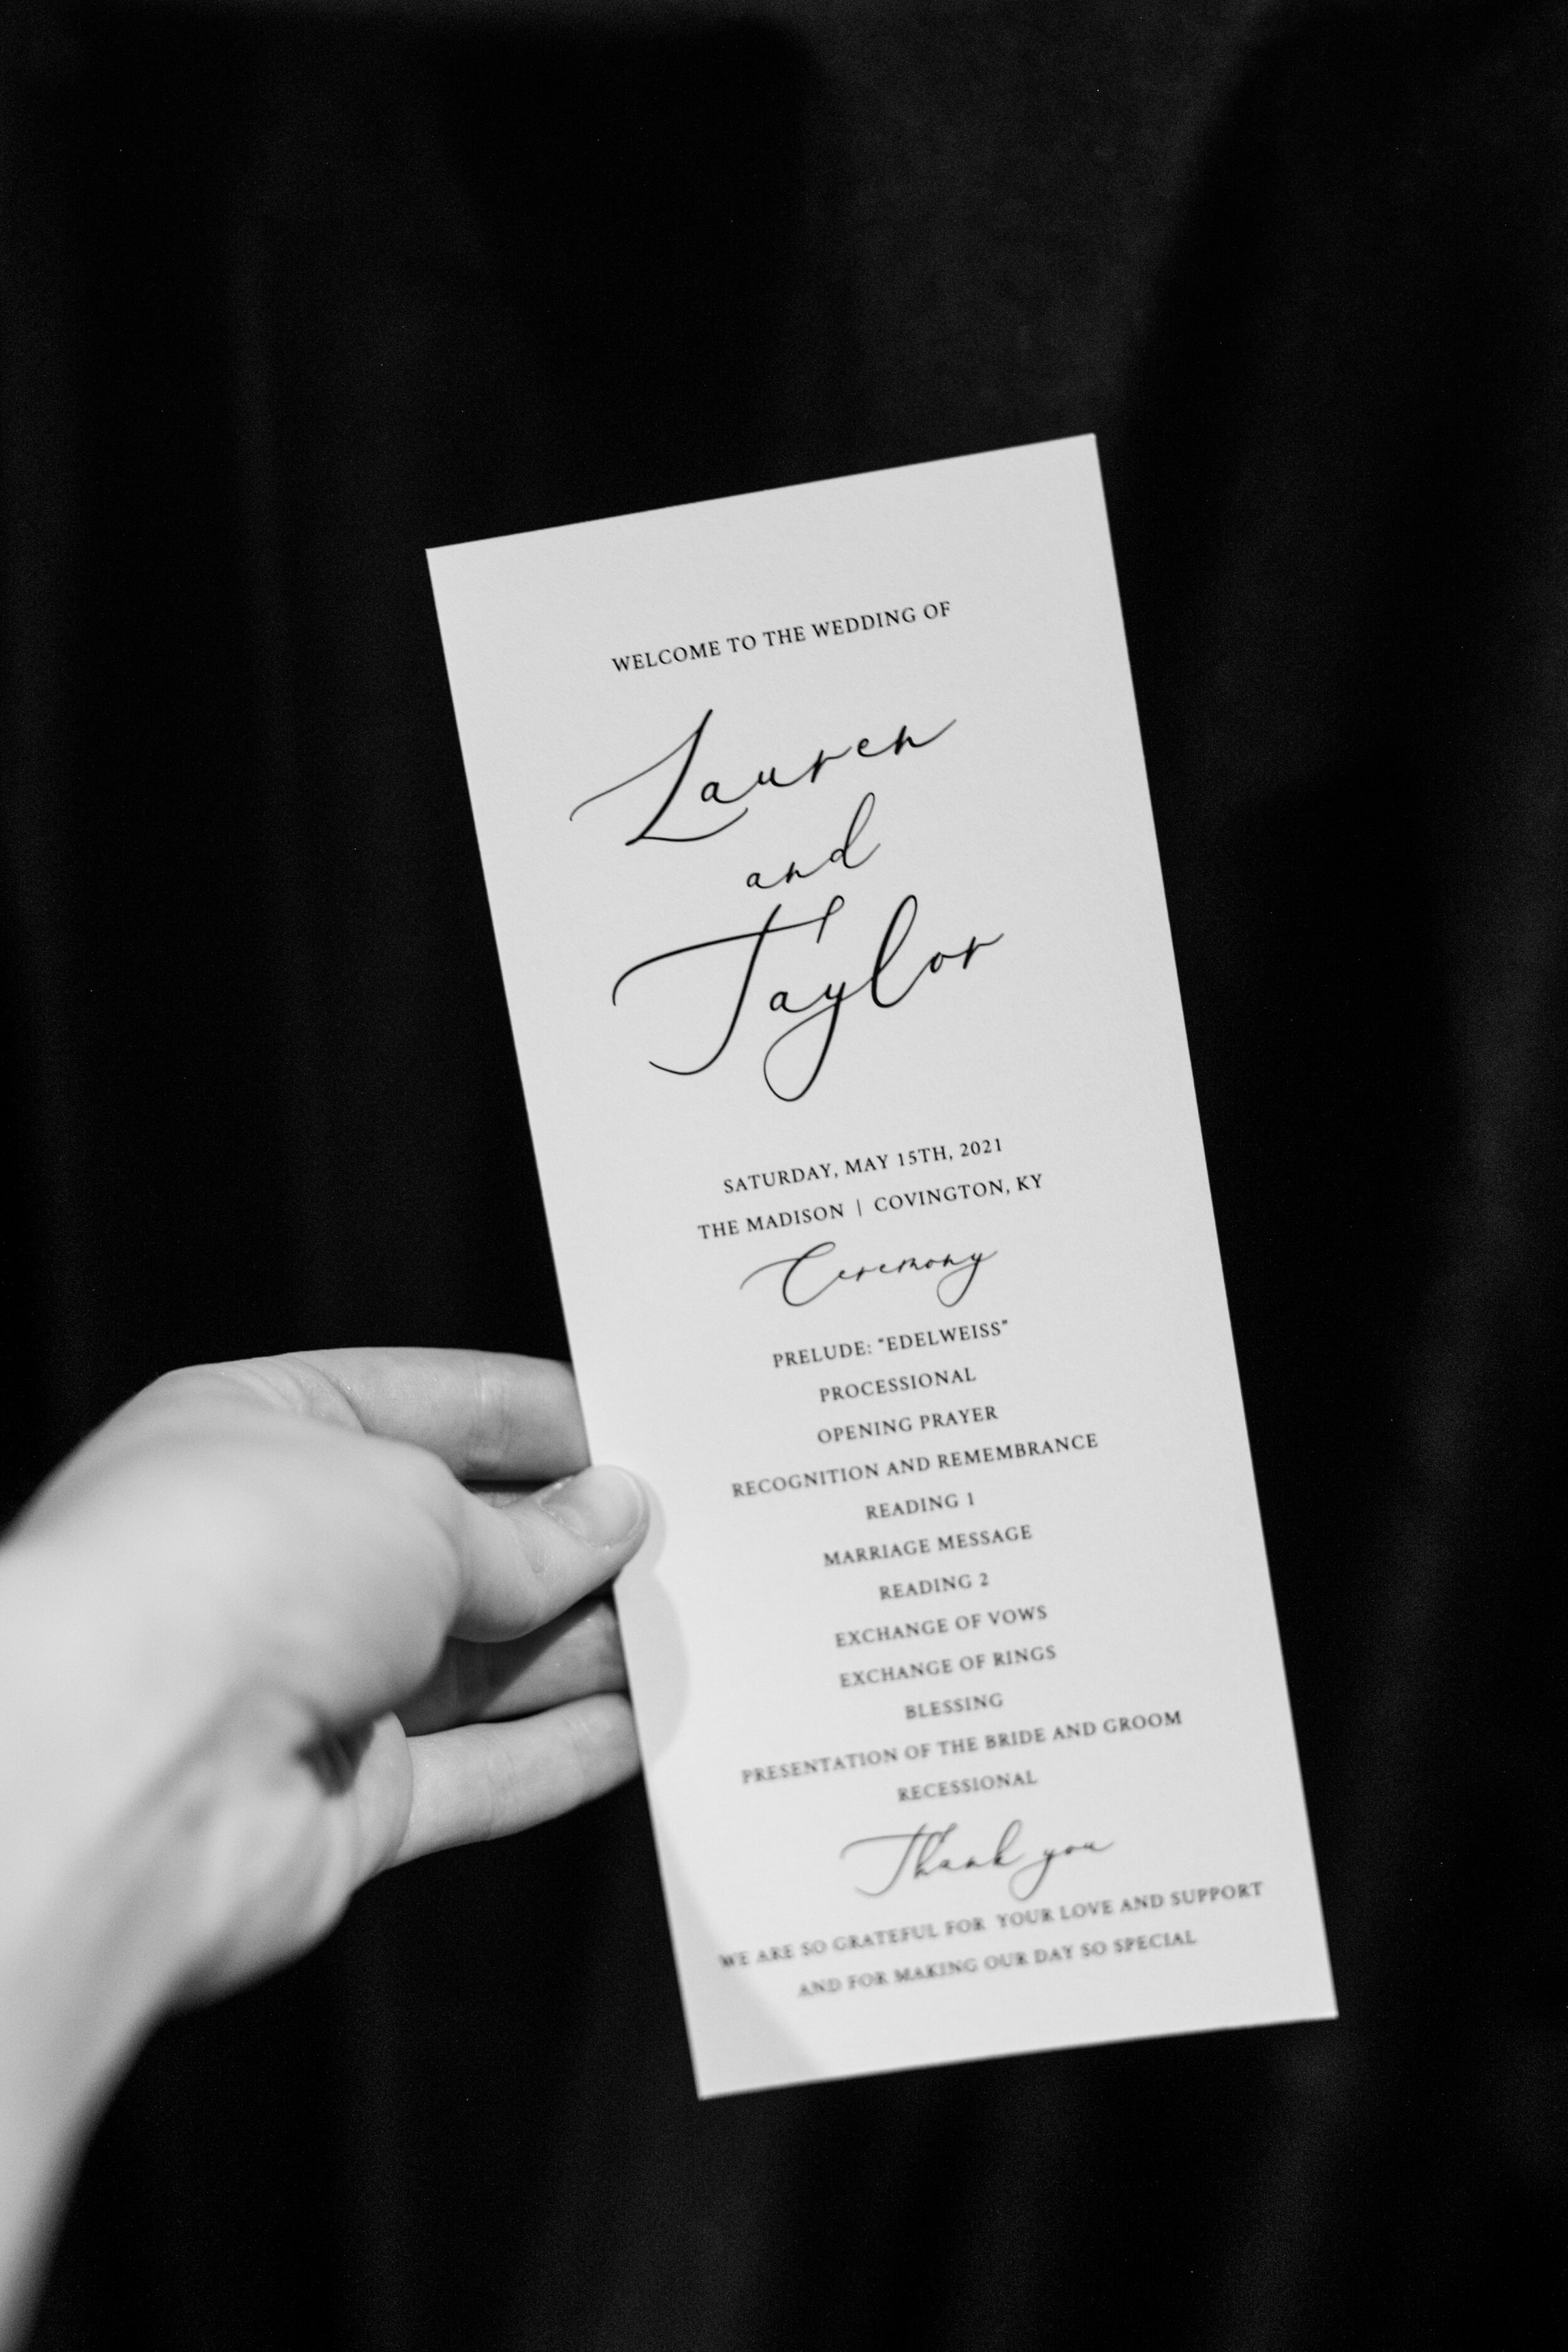 WELCOME TO THE WEDDING OF
Lauren
and
Taylor
SATURDAY, MAY 15TH, 2021
THE MADISON | COVINGTON, KY
Ceremony
PRELUDE: "EDELWEISS"
PROCESSIONAL
OPENING PRAYER
RECOGNITION AND REMEMBRANCE
READING 1
MARRIAGE MESSAGE
READING 2
EXCHANGE OF VOWS
EXCHANGE OF RINGS
BLESSING
PRESENTATION OF THE BRIDE AND GROOM
RECESSIONAL
Thank you
WE ARE SO GRATEFUL FOR YOUR LOVE AND SUPPORT
AND FOR MAKING OUR DAY SO SPECIAL